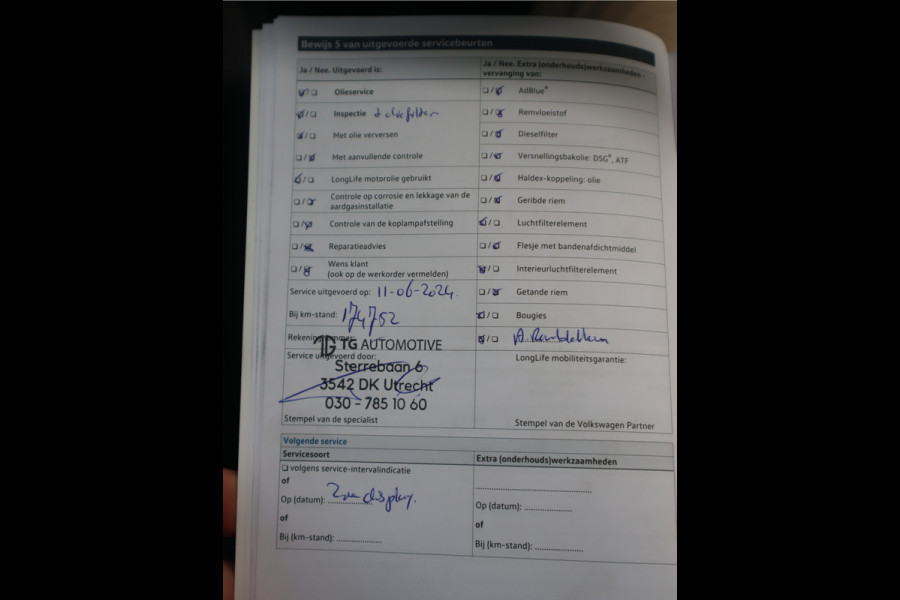 Bewijs 5 van uitgevoerde servicebeurten
Ja / Nee. Uitgevoerd is:
Olieservice
Inspectie + oliefilter
Met olie verversen
Met aanvullende controle
LongLife motorolie gebruikt
Controle op corrosie en lekkage van de
aardgasinstallatie
Controle van de koplampafstelling
Reparatieadvies
Wens klant
(ook op de werkorder vermelden)
Service uitgevoerd op: 11-06-2024
Bij km-stand: 174752
Rekeningnummer:
Service uitgevoerd door:
TG TG AUTOMOTIVE
Sterrebaan 6
3542 DK Utrecht
030 - 785 10 60
Stempel van de specialist
Ja / Nee. Extra (onderhouds)werkzaamheden -
vervanging van:
AdBlue®
Remvloeistof
Dieselfilter
Versnellingsbakolie: DSG®, ATF
Haldex-koppeling: olie
Geribde riem
Luchtfilterelement
Flesje met bandenafdichtmiddel
Interieurluchtfilterelement
Getande riem
Bougies
LongLife mobiliteitsgarantie:
Stempel van de Volkswagen Partner
Volgende service
Servicesoort
volgens service-intervalindicatie
of
Op (datum): Zie display.
of
Bij (km-stand): ................
Extra (onderhouds)werkzaamheden
Op (datum): ................
of
Bij (km-stand): ................